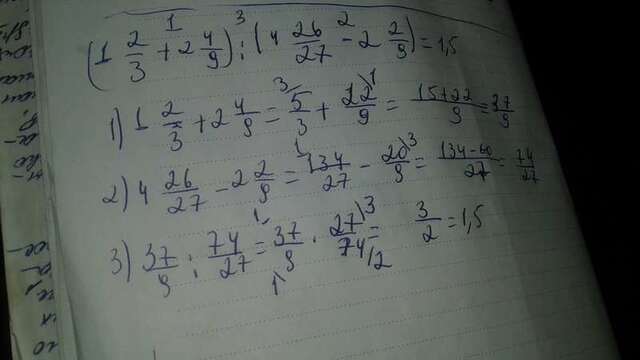 (1 2/3 + 2 4/9) : (4 26/27 - 2 2/9) = 1,5
1) 1 2/3 + 2 4/9 = 5/3 + 22/9 = 15+22/9 = 37/9
2) 4 26/27 - 2 2/9 = 134/27 - 20/9 = 134-60/27 = 74/27
3) 37/9 : 74/27 = 37/9 · 27/74 = 3/2 = 1,5